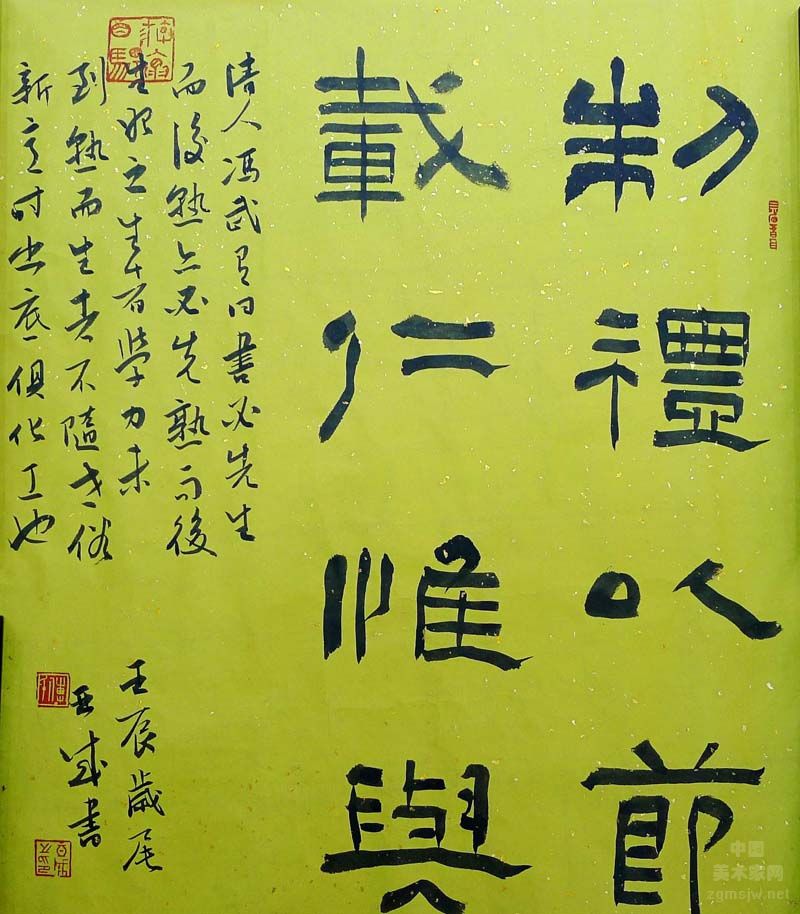 制禮以節
載仁惟與
清人馮武有曰書必先生
而後熟亦必先熟而後
生始之生者學力未
到熟而生者不隨世俗
新意時出底俱化工也
壬辰歲尾
書
中国
美术家网
zgmsjw.net